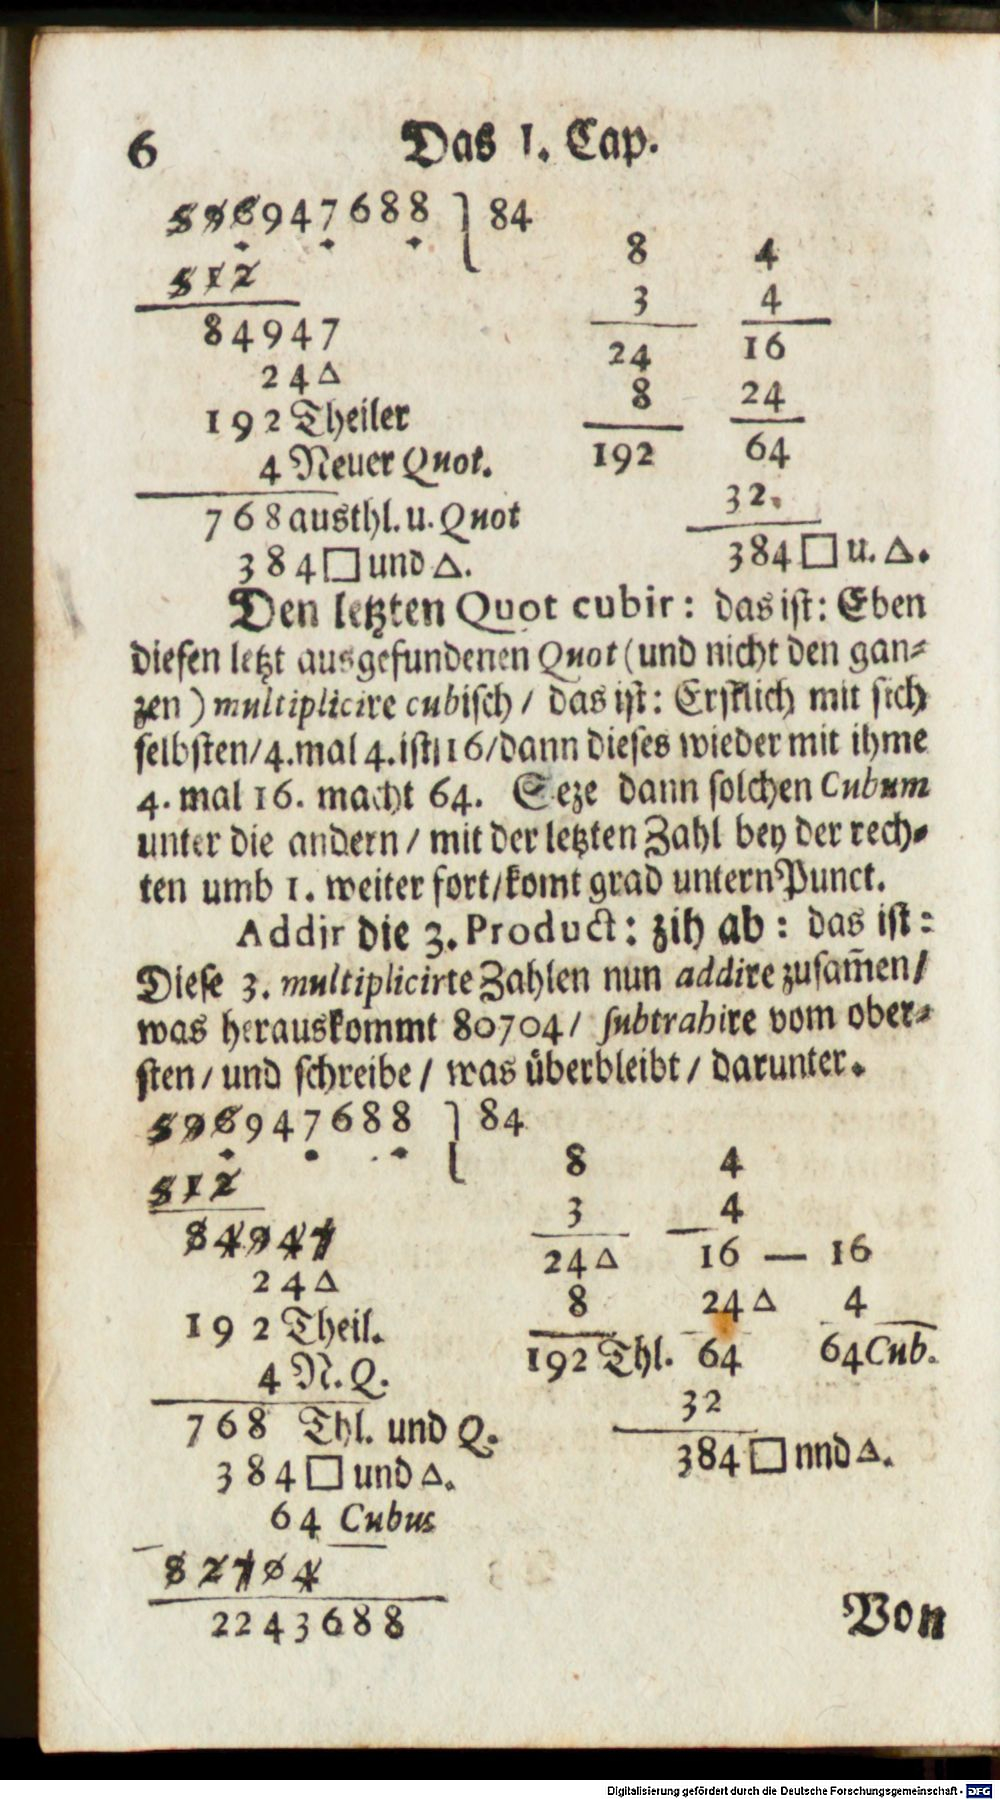 6 Das 1. Cap.
596947688 84
512
84947
24△
192 Theiler
4 Neuer Quot.
768 austhl. u. Quot
384□ und △.
8
3
24
8
192
4
4
16
24
64
32.
384□ u. △.
Den letzten Quot cubir: das ist: Eben
diesen letzt ausgefundenen Quot (und nicht den gan-
zen) multiplicire cubisch / das ist: Erstlich mit sich
selbsten/4.mal 4.ist 16/dann dieses wieder mit ihme
4. mal 16. macht 64. Seze dann solchen Cubum
unter die andern / mit der letzten Zahl bey der rech-
ten umb 1. weiter fort/komt grad untern Punct.
Addir die 3. Product: zih ab: das ist:
Diese 3. multiplicirte Zahlen nun addire zusam̃en/
was herauskommt 80704/ subtrahire vom ober-
sten / und schreibe / was überbleibt / darunter.
596947688 84
512
84947
24△
192 Theil.
4 N. Q.
768 Thl. und Q.
384□ und △.
64 Cubus
82704
2243688
8
3
24△
8
192 Thl.
4
4
16 — 16
24△ 4
64 64 Cub.
32
384□ nnd △.
Von
Digitalisierung gefördert durch die Deutsche Forschungsgemeinschaft - DFG